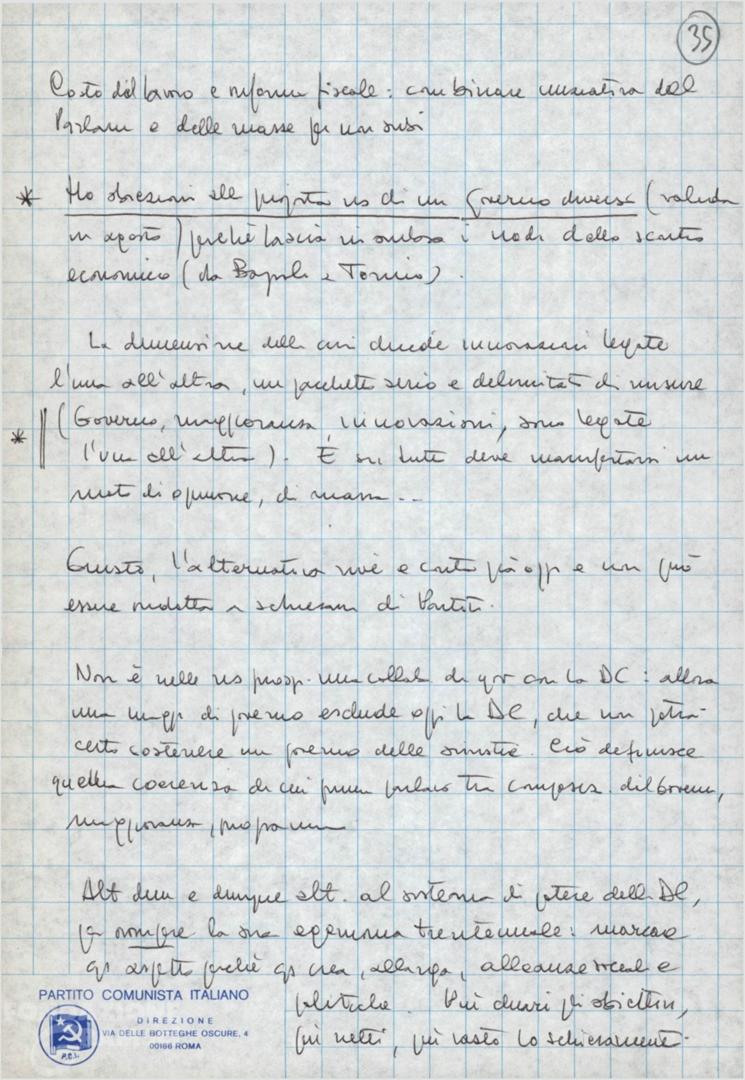 35
Costo del lavoro e riforma fiscale : combinare iniziativa del
Parlam e delle masse per
* Ho obiezioni alla proposta ns di un Governo diverso (valida
in agosto) perché lascia in ombra i nodi dello scontro
economico (da Bagnoli a Torino).
La dimensione della crisi chiede innovazioni legate
l'una all'altra, un pacchetto serio e delimitato di misure
* (Governo, maggioranza, innovazioni, sono legate
l'una all'altra). È su tutto deve manifestarsi un
moto di opinione, di massa...
Giusto, l'alternativa vive e conta già oggi e non può
essere ridotta a schieram di Partiti.
Non è nella ns prosp. una collab di gov con la DC : allora
una magg di governo esclude oggi la DC, che non potrà
certo sostenere un governo delle sinistre. Ciò definisce
quella coerenza di cui prima parlavo tra compos. del Governo,
maggioranza, programma
Alt dem è dunque alt. al sistema di potere della DC,
per rompere la sua egemonia trentennale : marcare
qs aspetto perché qs crea, allarga, alleanze sociali e
politiche. Più chiari gli obiettivi,
più netti, più vasto lo schieramento.
PARTITO COMUNISTA ITALIANO
DIREZIONE
VIA DELLE BOTTEGHE OSCURE, 4
00186 ROMA
P.C.I.